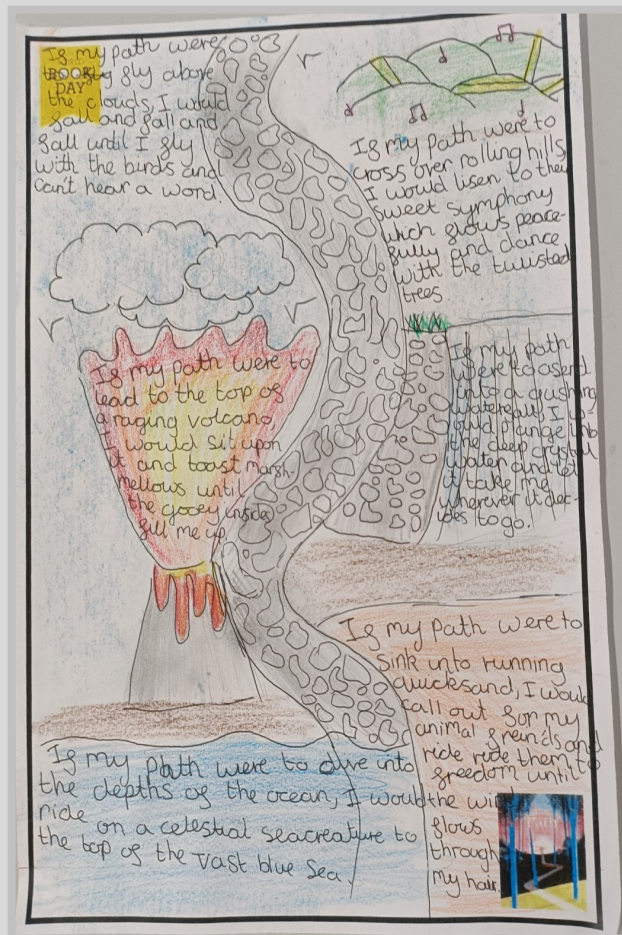 If my path were
to fly above
the clouds, I would
fall and fall and
fall until I fly
with the birds and
can't hear a word.
BOOK
DAY
If my path were to
cross over rolling hills,
I would lisen to their
sweet symphony
which flows peace-
fully and dance
with the twisted
trees
If my path were to
lead to the top of
a raging volcano,
I would sit upon
it and toast marsh-
mellows until
the gooey insides
fill me up.
If my path
were to asend
into a gushing
waterfall, I w-
ould plunge into
the deep crystal
water and let
it take me
wherever it dec-
ides to go.
If my path were to
sink into running
quicksand, I would
call out for my
animal freinds and
ride ride them to
freedom until
the wind
flows
through
my hair.
If my path were to dive into
the depths of the ocean, I would
ride on a celestial seacreature to
the top of the vast blue sea.